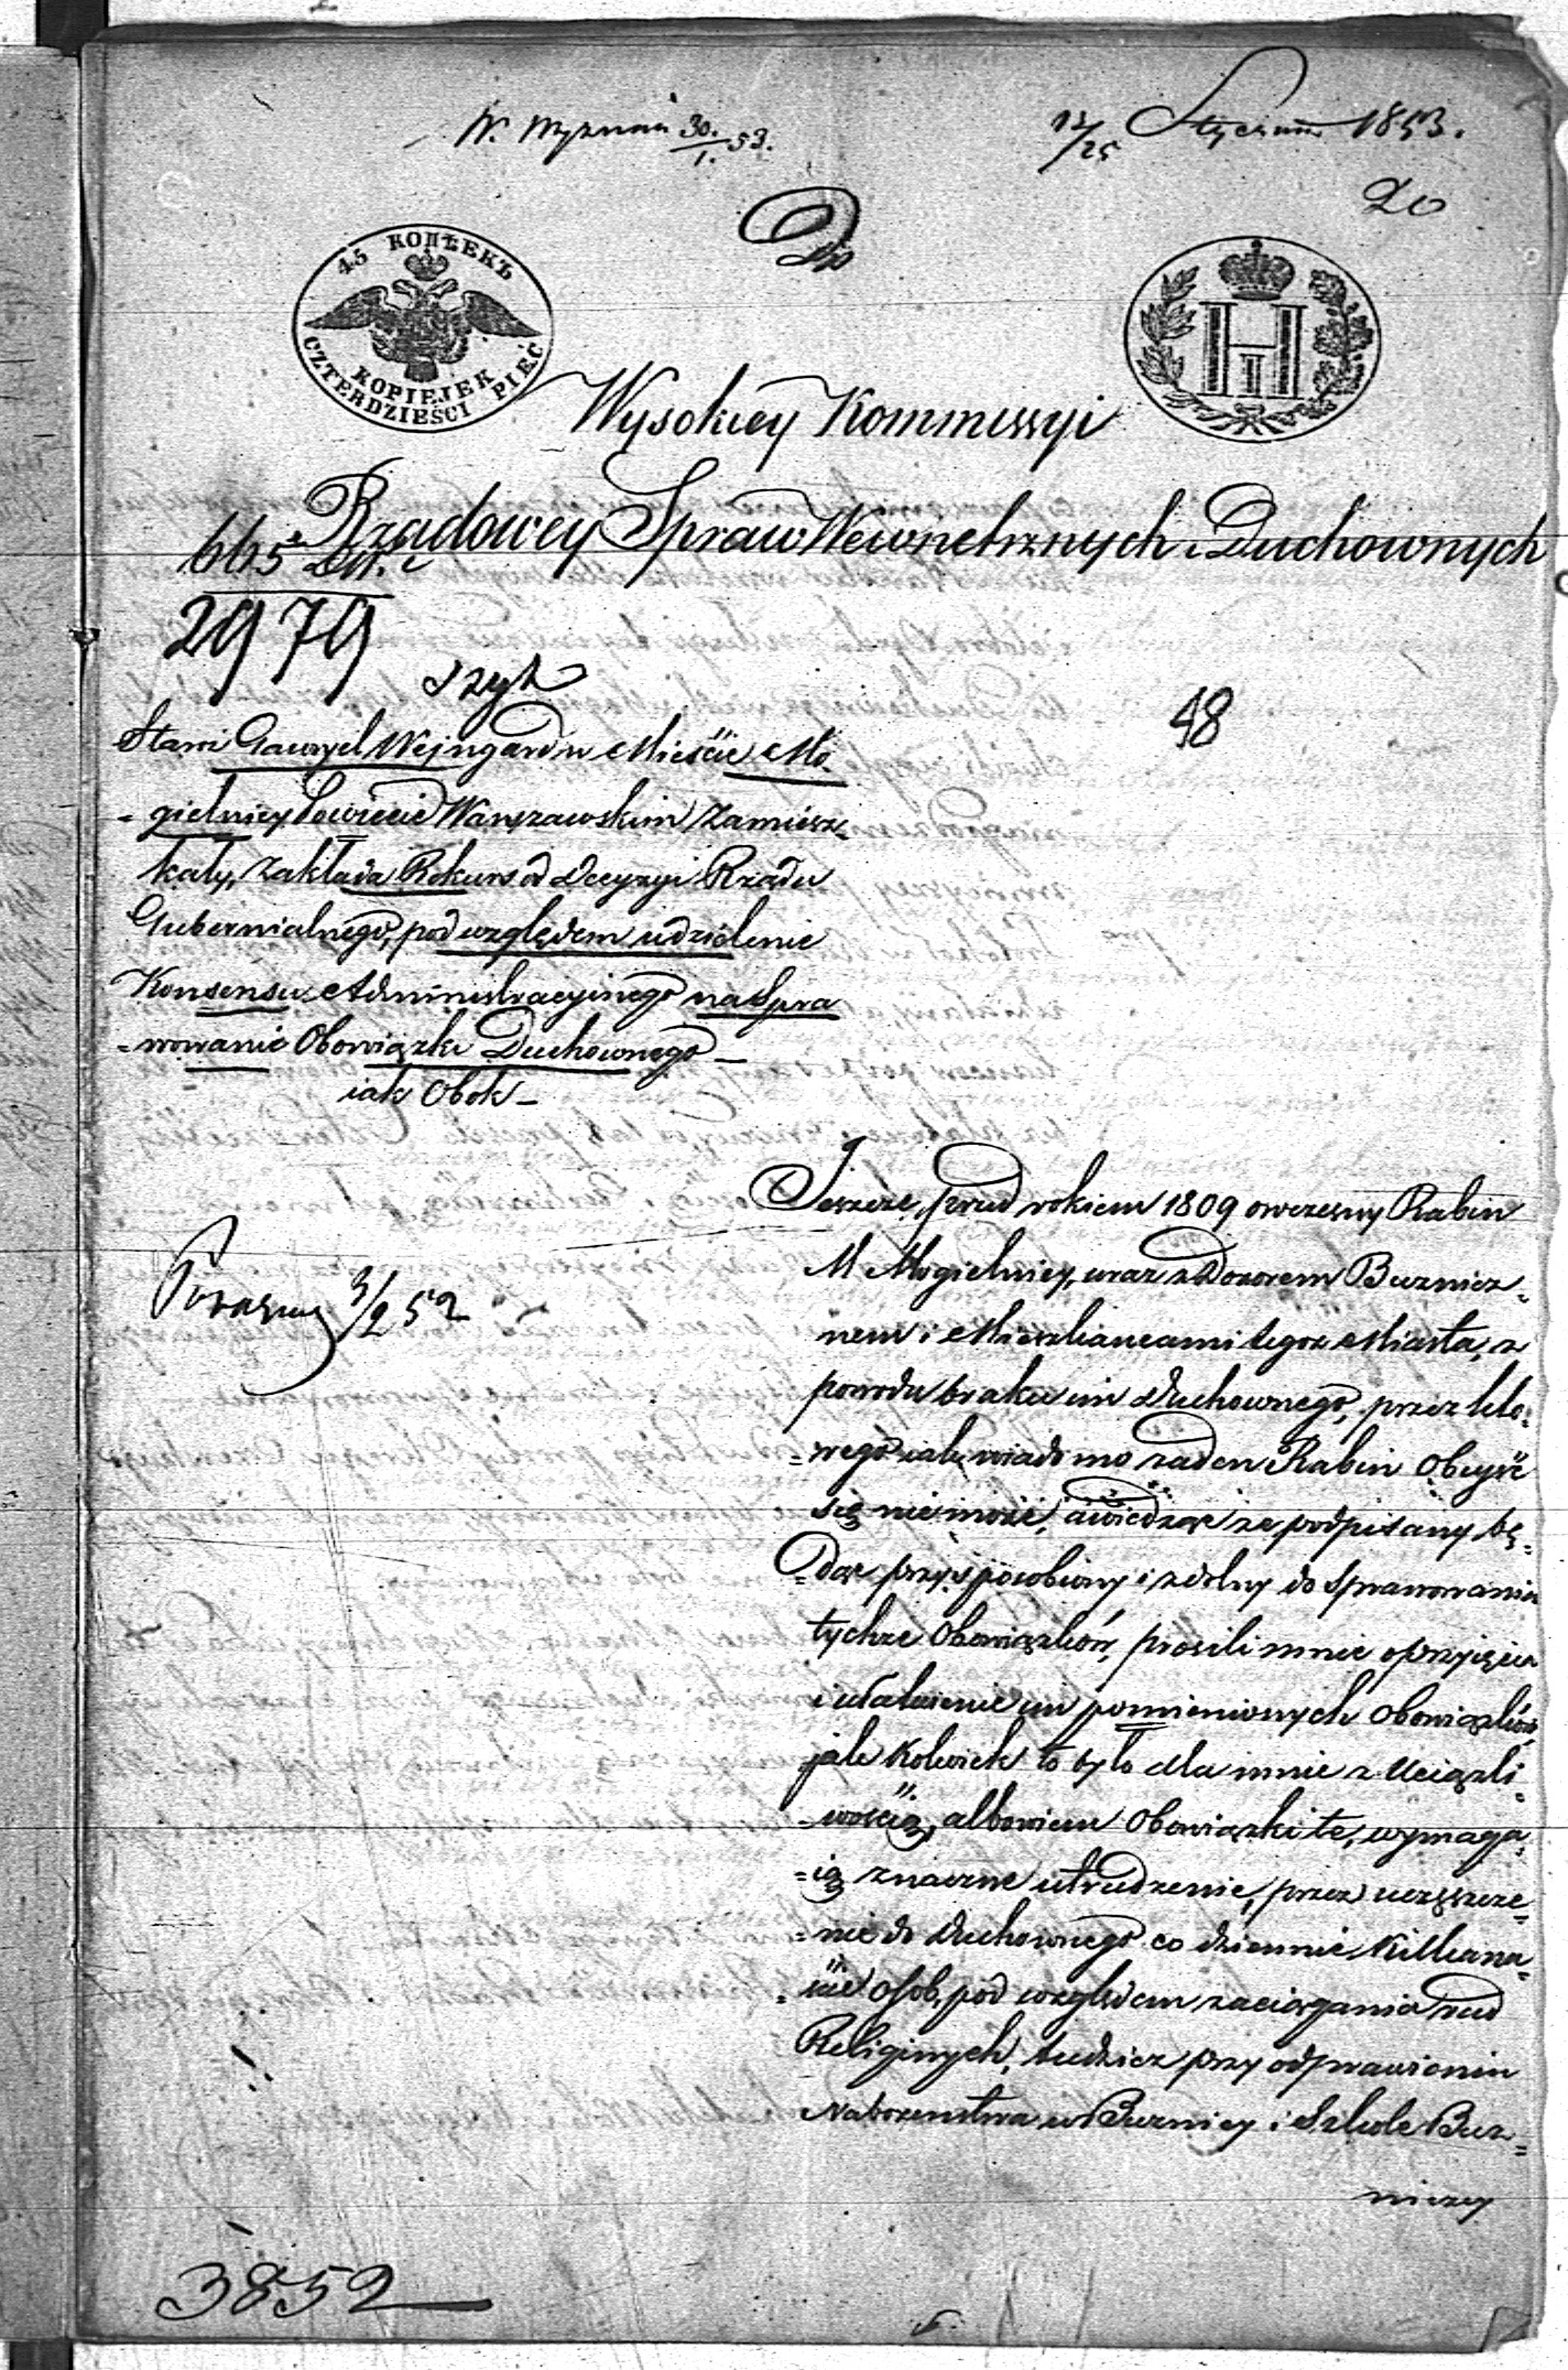 W. Wyznań 30./1. 53.
13/25 Stycznia 1853.
20
Do
45 КОПѢЕКЪ
KOPIEJEK
CZTERDZIEŚCI PIĘĆ
H
Wysokiey Kommissyi
Rządowey Spraw Wewnetrznych i Duchownych
665
2979
48
Starn Gawryel Wejngard w Mieście Mo
-gielnicy Powiecie Warszawskim Zamiesz-
kały, zakłada Rekurs od Decyzyi Rządu
Gubernialnego, pod względem udzielenie
Konsensu Administracyinego na Spra
-wowanie Obowiązku Duchownego
iak Obok
Jeszcze przed rokiem 1809 owczesny Rabin
M Mogielnicy, wraz z Dozorem Buznicz-
nem i Mieszkancami tegoz Miasta, z
powodu braku im Duchownego, przez któ-
-rego iak wiadomo zaden Rabin Obeyść
się nie może, a wiedząc ze podpisany bę-
-dąc przysposobiony i zdolny do sprawowania
tychze Obowiązków, prosili mnie o przyięcie
i ułatwienie im pomienionych Obowiązków
jak kolwiek to było dla mnie z Uciążli-
-wością, albowiem Obowiązki te, wymaga-
-ią znaczne utrudzenie, przez uczęszcze-
-nie do Duchownego co dziennie Kilkana-
-ście osob, pod względem zaciągania rad
Religinych, tudziez przy odprawieniu
Nabozenstwa w Buznicy i Szkole Buz-
niczey
3/2 52
3852